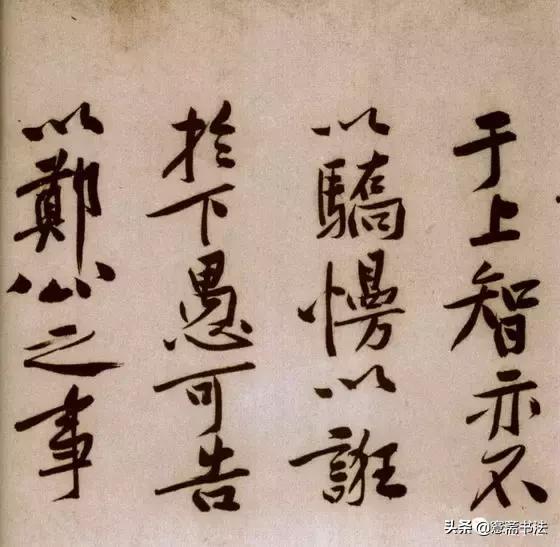 于上智亦不
以驕慢以誑
扵下愚可告
以鄭公之事
头条 @愙斋书法